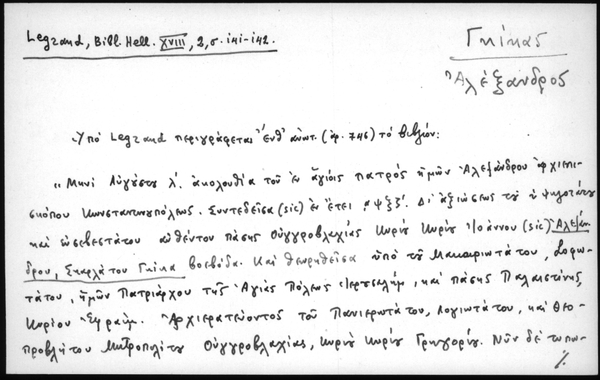 Legrand, Bibl. Hell. XVIII, 2, σ. 141-142.
Γκίκας
Ἀλέξανδρος
Ὑπὸ Legrand περιγράφεται ἔνθ' ἀνωτ. (ἀρ. 746) τὸ βιβλίον:
"Μηνὶ Αὐγούστῳ λ΄. ἀκολουθία τοῦ ἐν ἁγίοις πατρὸς ἡμῶν Ἀλεξάνδρου ἀρχιεπι-
σκόπου Κωνσταντινουπόλεως. Συντεθεῖσα (sic) ἐν ἔτει ͵αψξξ΄. Δι' ἀξιώσεως τοῦ ὑψηλοτάτου
καὶ εὐσεβεστάτου αὐθέντου πάσης Οὑγγροβλαχίας Κυρίου Κυρίου Ἰωάννου (sic) Ἀλεξάν-
δρου, Σκαρλάτου Γκίκα βοεβόδα. Καὶ θεωρηθεῖσα ὑπὸ τοῦ Μακαριωτάτου, Σοφω-
τάτου, ἡμῶν Πατριάρχου τῆς Ἁγίας Πόλεως Ἱερουσαλήμ, καὶ πάσης Παλαιστίνης,
Κυρίου Ἐφραίμ. Ἀρχιερατεύοντος τοῦ Πανιερωτάτου, Λογιωτάτου, καὶ Θεο-
προβλήτου Μητροπολίτου Οὑγγροβλαχίας, Κυρίου Κυρίου Γρηγορίου. Νῦν δὲ τυπω-
./.